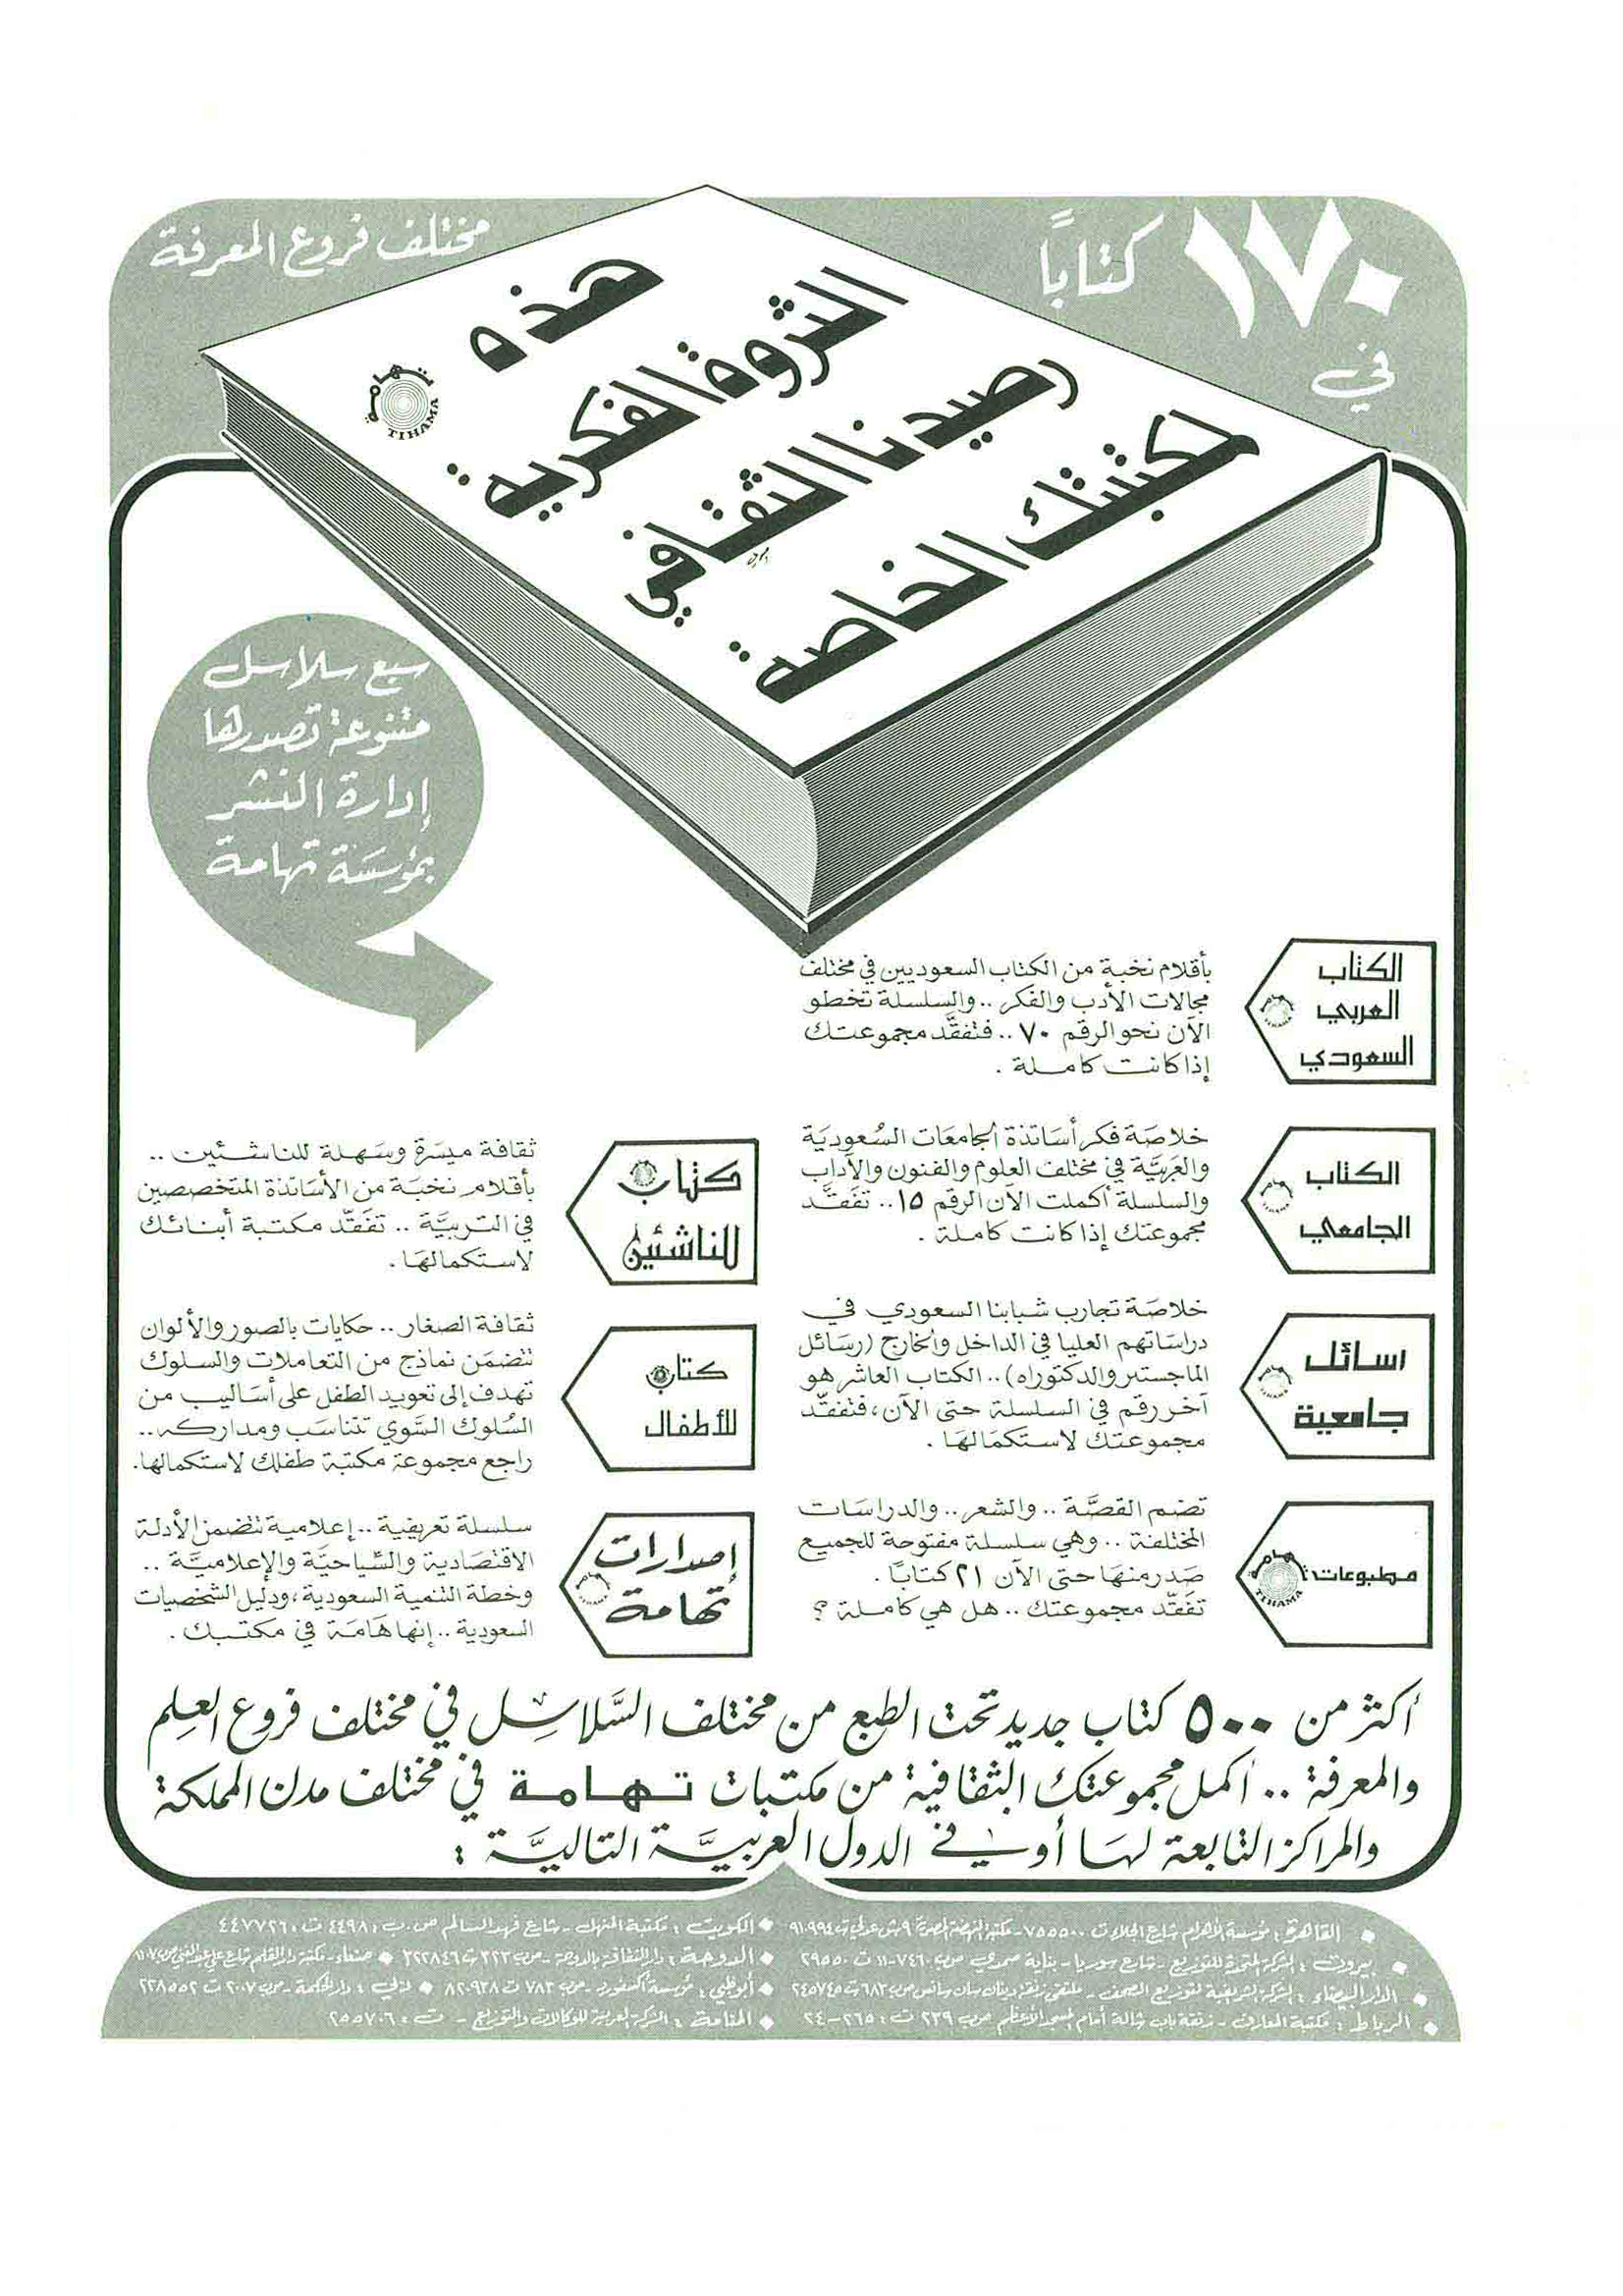 ١٧٠ كتابًا
في
مختلف فروع المعرفة
هذه
الثروة الفكرية
رصيدنا الثقافي
لمكتبتك الخاصة
تهامة
TIHAMA
سبع سلاسل
متنوعة تصدرها
إدارة النشر
بمؤسَسَة تهامة
الكتاب
العربي
السعودي
بأقلام نخبة من الكتاب السعوديين في مختلف
مجالات الأدب والفكر .. والسلسلة تخطو
الآن نحو الرقم ٧٠ .. فتفقَّد مجموعتك
إذا كانت كاملة .
الكتاب
الجامعي
خلاصَة فكر أسَاتذة الجامعَات السُعوديَة
والعَربيَّة في مختلف العلوم والفنون والآداب
والسلسلة أكملت الآن الرقم ١٥ .. تفَقَّد
مجموعتك إذا كانت كاملة .
رسائل
جامعية
خلاصَة تجارب شبابنا السعودي في
دراسَاتهم العليا في الداخل والخارج (رسَائل
الماجستير والدكتوراه) .. الكتاب العاشر هو
آخر رقم في السلسلة حتى الآن ، فتفقَّد
مجموعتك لاستكمَالهَا .
مطبوعات تهامة
TIHAMA
تضم القصَّة .. والشعر .. والدراسَات
المختلفة .. وهي سلسلة مفتوحة للجميع
صَدر منهَا حتى الآن ٢١ كتابًا .
تفَقَّد مجموعتك .. هل هي كاملة ؟
كتاب
للناشئين
ثقافة ميسَرة وسَهلة للناشئين ..
بأقلام نخبَة من الأسَاتذة المتخصصين
في التربيَّة .. تفَقَّد مكتبة أبنائك
لاستكمالهَا .
كتاب
للأطفال
ثقافة الصغار .. حكايات بالصور والألوان
تتضمَن نماذج من التعاملات والسلوك
تهدف إلى تعويد الطفل على أسَاليب من
السُلوك السَّوي تتناسَب ومداركه ..
راجع مجموعة مكتبة طفلك لاستكمالها .
إصدارات
تهامة
سلسلة تعريفية .. إعلامية تتضمن الأدلة
الاقتصَادية والسَّياحيَّة والإعلاميَّة ..
وخطة التنمية السعودية ، ودليل الشخصيات
السعودية .. إنها هَامَة في مكتبك .
أكثر من ٥٠٠ كتاب جديد تحت الطبع من مختلف السَّلاسِل في مختلف فروع العلم
والمعرفة .. أكمل مجموعتك الثقافية من مكتبات تهامة في مختلف مدن المملكة
والمراكز التابعة لهَا أو في الدول العربيَّة التاليَّة :
القاهرة : مؤسسة الأهرام شارع الجلاء ت ٧٥٥٥٠٠ - مكتبة النهضة المصرية ٩ ش عدلي ت ٩١٠٩٩٤
الكويت : مكتبة المنهل - شارع فهد السالم ص . ب : ٤٤٩٨ ت : ٤٤٧٧٢٦
بيروت : الشركة المتحدة للتوزيع - شارع سوريا - بناية صمدي ص ب ٧٤٦٠ - ١١ ت ٢٩٥٥٠
الدوحة : دار الثقافة بالدوحة - ص ب ٣٢٣ ت ٣٢٢٨٤٦
صنعاء - مكتبة دار القلم شارع علي عبد الغني ص ب ١١٠٧
الدار البيضاء : الشركة الشريفية لتوزيع الصحف - ملتقى زنقة دينان سان سانس ص ب ٦٨٣ ت ٢٤٥٧٤٥
أبو ظبي : مؤسسة أكسفورد - ص ب ٧٨٣ ت ٨٢٠٩٣٨
دبي : دار الحكمة - ص ب ٢٠٠٧ ت ٢٢٨٥٥٢
الرباط : مكتبة المعارف - زنقة باب شالة أمام المسجد الأعظم ص ب ٢٣٩ ت : ٢٦٥ - ٢٤
المنامة : الشركة العربية للوكالات والتوزيع - ت : ٢٥٥٧٠٦